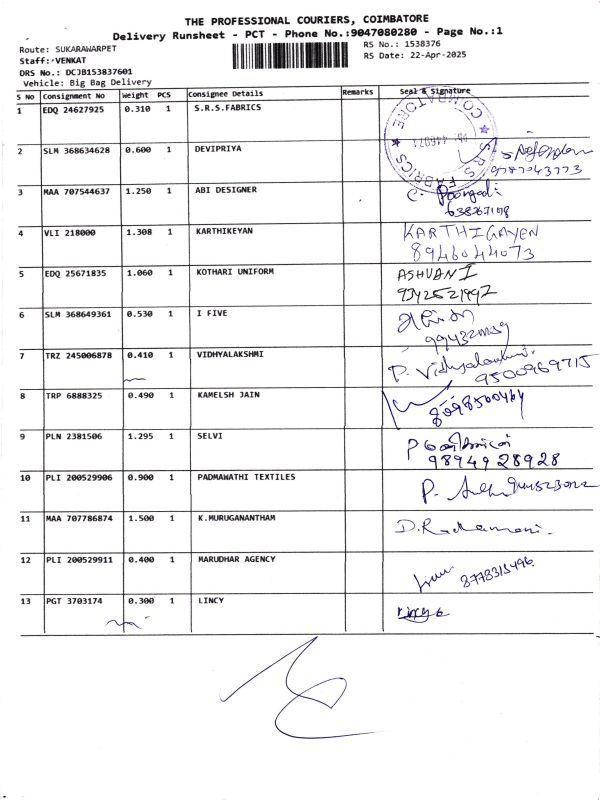 THE PROFESSIONAL COURIERS, COIMBATORE
Delivery Runsheet - PCT - Phone No.:9047080280 - Page No.:1
Route: SUKARAWARPET
RS No.: 1538376
Staff: VENKAT
RS Date: 22-Apr-2025
DRS No.: DCJB153837601
Vehicle: Big Bag Delivery
S No Consignment No Weight PCS Consignee Details Remarks Seal & Signature
1 EDQ 24627925 0.310 1 S.R.S.FABRICS
COIMBATORE S.R.S. FABRICS
2 SLM 368634628 0.600 1 DEVIPRIYA
9787043773
3 MAA 707544637 1.250 1 ABI DESIGNER
4 VLI 218000 1.308 1 KARTHIKEYAN KARTHIGAYEN
8946044073
5 EDQ 25671835 1.060 1 KOTHARI UNIFORM ASHVANI
9342521997
6 SLM 368649361 0.530 1 I FIVE
7 TRZ 245006878 0.410 1 VIDHYALAKSHMI P. Vidhyalakshmi.
9500969715
8 TRP 6888325 0.490 1 KAMELSH JAIN
9 PLN 2381506 1.295 1 SELVI
9894928928
10 PLI 200529906 0.900 1 PADMAWATHI TEXTILES
11 MAA 707786874 1.500 1 K.MURUGANANTHAM D.Radhamani.
12 PLI 200529911 0.400 1 MARUDHAR AGENCY 8778315496
13 PGT 3703174 0.300 1 LINCY